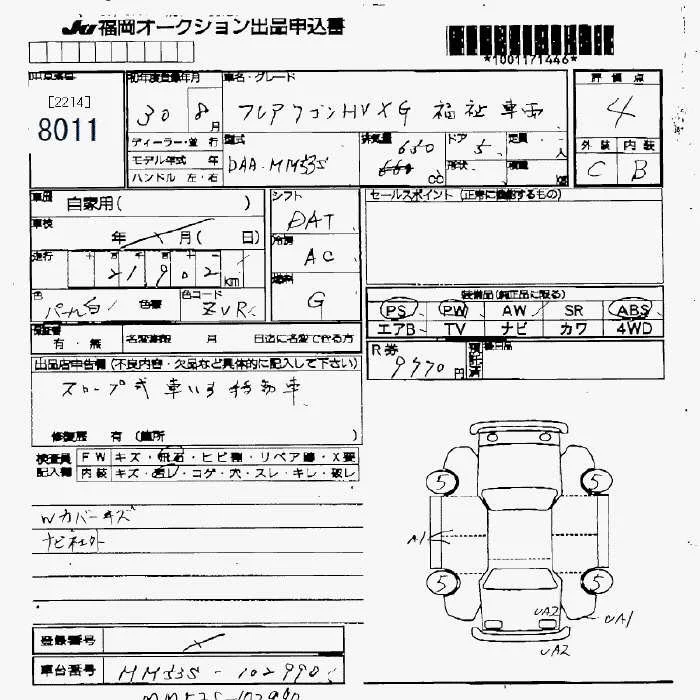 JU 福岡オークション出品申込書
*1001171446*
[2214]
8011
初年度登録年月
30 8月
車名・グレード
フレアワゴンHV XG 福祉車両
評価点
4
ディーラー・並行
モデル年式 年
ハンドル 左・右
型式
DAA-MM53S
排気量
650
660 cc
ドア
5
形状
定員
人
積載
kg
外装 内装
C B
車歴
自家用( )
シフト
DAT
セールスポイント (正常に機能するもの)
車検
年 月( 日)
冷房
AC
走行
21,902 km
燃料
G
色
パール白
色替
色コード
ZVR
装備品(純正品に限る)
PS PW AW SR ABS
エアB TV ナビ カワ 4WD
保証書
有・無
名変期限 月 日迄に名変できる方
R券
9770円
後日品
出品店申告欄 (不良内容・欠品など具体的に記入して下さい)
スロープ式 車いす移動車
修復歴 有 (箇所
検査員
記入欄
FW キズ・飛石・ヒビ割・リペア跡・X要
内装 キズ・汚レ・コゲ・穴・スレ・キレ・破レ
Wカバーキズ
5 5
A1
5 5
UA2
UA1
UA2
登録番号
車台番号
MM53S-102990
MM53S-102990